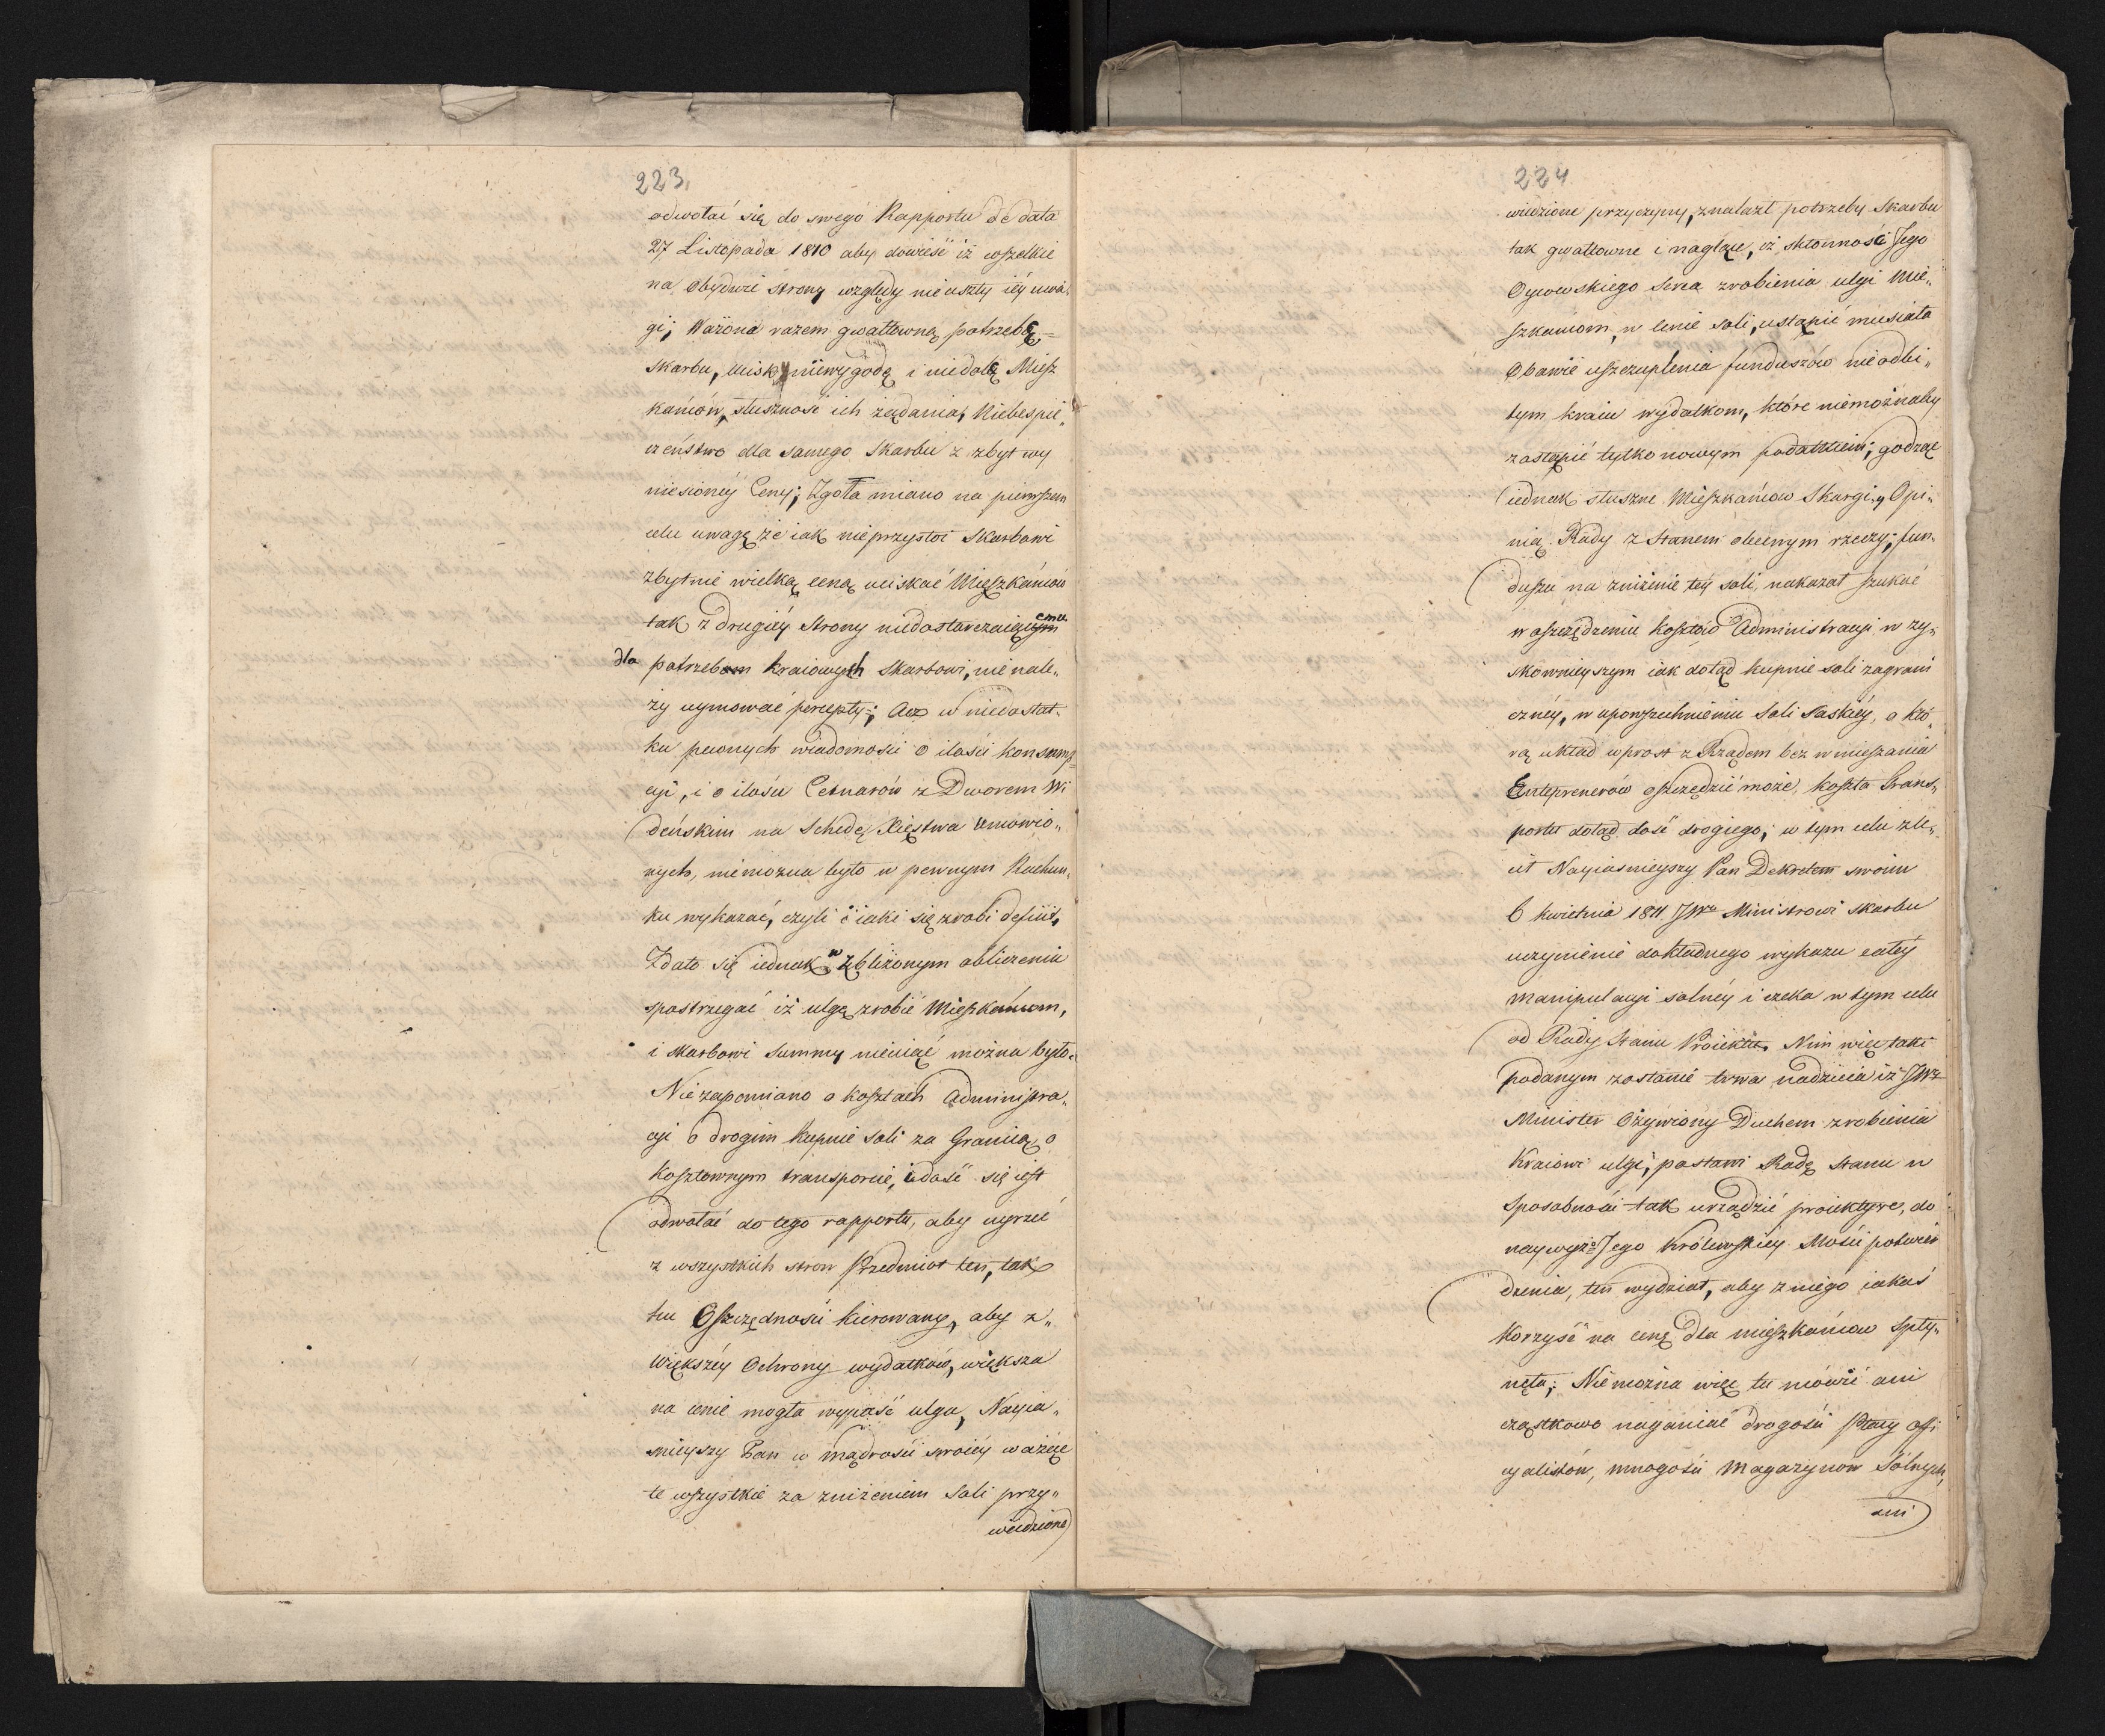 223.
odwołać się do swego Rapportu de data
27 Listopada 1810 aby dowieść iż wszelkie
na obydwie strony względy nie uszły iéy uwa„
gi; Ważona razem gwałtowną potrzebę
skarbu, ucisk niewygodę i niedolę Miesz
kańców, słuszność ich żądania, Niebespie„
czeństwo dla samego Skarbu z zbyt wy
niesionéy Ceny; Zgoła miano na pierwszem
celu uwagę że iak nieprzystoi Skarbowi
zbytnie wielką ceną uciskać Mieszkańców
tak z drugiéy strony niedostarczaiącemu
dla potrzebom kraiowych skarbowi, nie nale„
ży uymować percepty; Acz w niedostat„
ku pewnych wiadomości o ilości konsump„
cyi, i o ilości Cetnarów z Dworem Wi
deńskim na Schedę Xięstwa Umowio„
nych, niemożna było w pewnym Rachun„
ku wykazać, czyli i iaki się zrobi deficit,
Zdało się iednak w zbliżonym obliczeniu
spostrzegać iż ulgę zrobić Mieszkańcom,
i skarbowi Summy nieuiąć można było.
Niezapomiano o kosztach Administra„
cyi o drogim kupnie soli za Granicą, o
kosztownym transporcie, i dość się iest
odwołać do tego rapportu, aby uyrzeć
z wszystkich stron Przedmiot ten, tak
ku Oszczędności kierowany, aby z„
większéy Ochrony wydatków, większa
na cenie mogła wypaść ulga, Nayia„
śnieyszy Pan w mądrości swoiéy ważąc
te wszystkie za zniżeniem Soli przy„
wiedzione
224
wiedzione przyczyny, znalazł potrzeby Skarbu
tak gwałtowne i naglące, iż skłonność Jego
Oycowskiego Serca zrobienia ulgi Mie„
szkańcom, w cenie soli, ustąpić musiała
Obawie uszczuplenia funduszów nieodbi„
tym kraiu wydatkom, które niemożnaby
zastąpić tylko nowym podatkiem; godząc
iednak słuszne Mieszkańców Skargi, y Opi„
nią Rady z stanem obecnym rzeczy; fun„
duszu na zniżenie téy soli, nakazał szukać
w oszczędzeniu kosztów Administracyi w zy„
skownieyszym iak dotąd kupnie soli zagrani
cznéy, w upowszechnieniu Soli Saskiéy, o któ„
rą układ wprost z Rządem bez wmieszania
Entreprenerów oszczędzić może, koszta trans„
portu dotąd dość drogiego; w tym celu zle„
cił Nayiaśnieyszy Pan Dekretem swoim
6 kwietnia 1811 JWu Ministrowi skarbu
uczynienie dokładnego wykazu całéy
Manipulacyi solnéy i czeka w tym celu
od Rady Stanu Proiektu. Nim więc taki
podanym zostanie trwa nadzieia iż JWy
Minister Ożywiony Duchem zrobienia
Kraiowi ulgi, postawi Radę Stanu w
sposobności tak urządzić proiektyve, do
naywyż: Jego Królewskiéy Mości potwier
dzenia, ten wydział, aby z niego iakaś
korzyść na cenę dla mieszkańców spły„
nęła; Nie można więc tu mówić ani
cząstkowo naganiać drogości Płacy offi
cyalistów, mnogości Magazynów Solnych,
ani